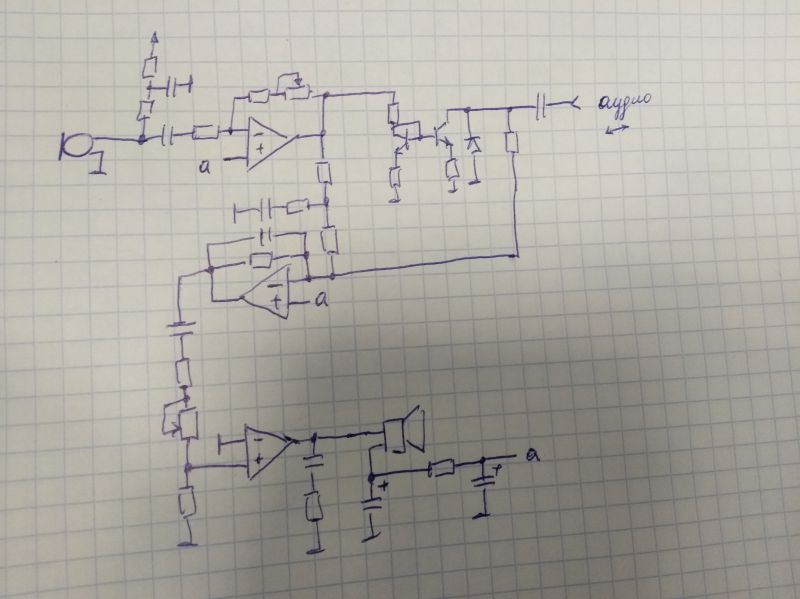 −
+
a
аудио
−
+
a
−
+
+
+
a